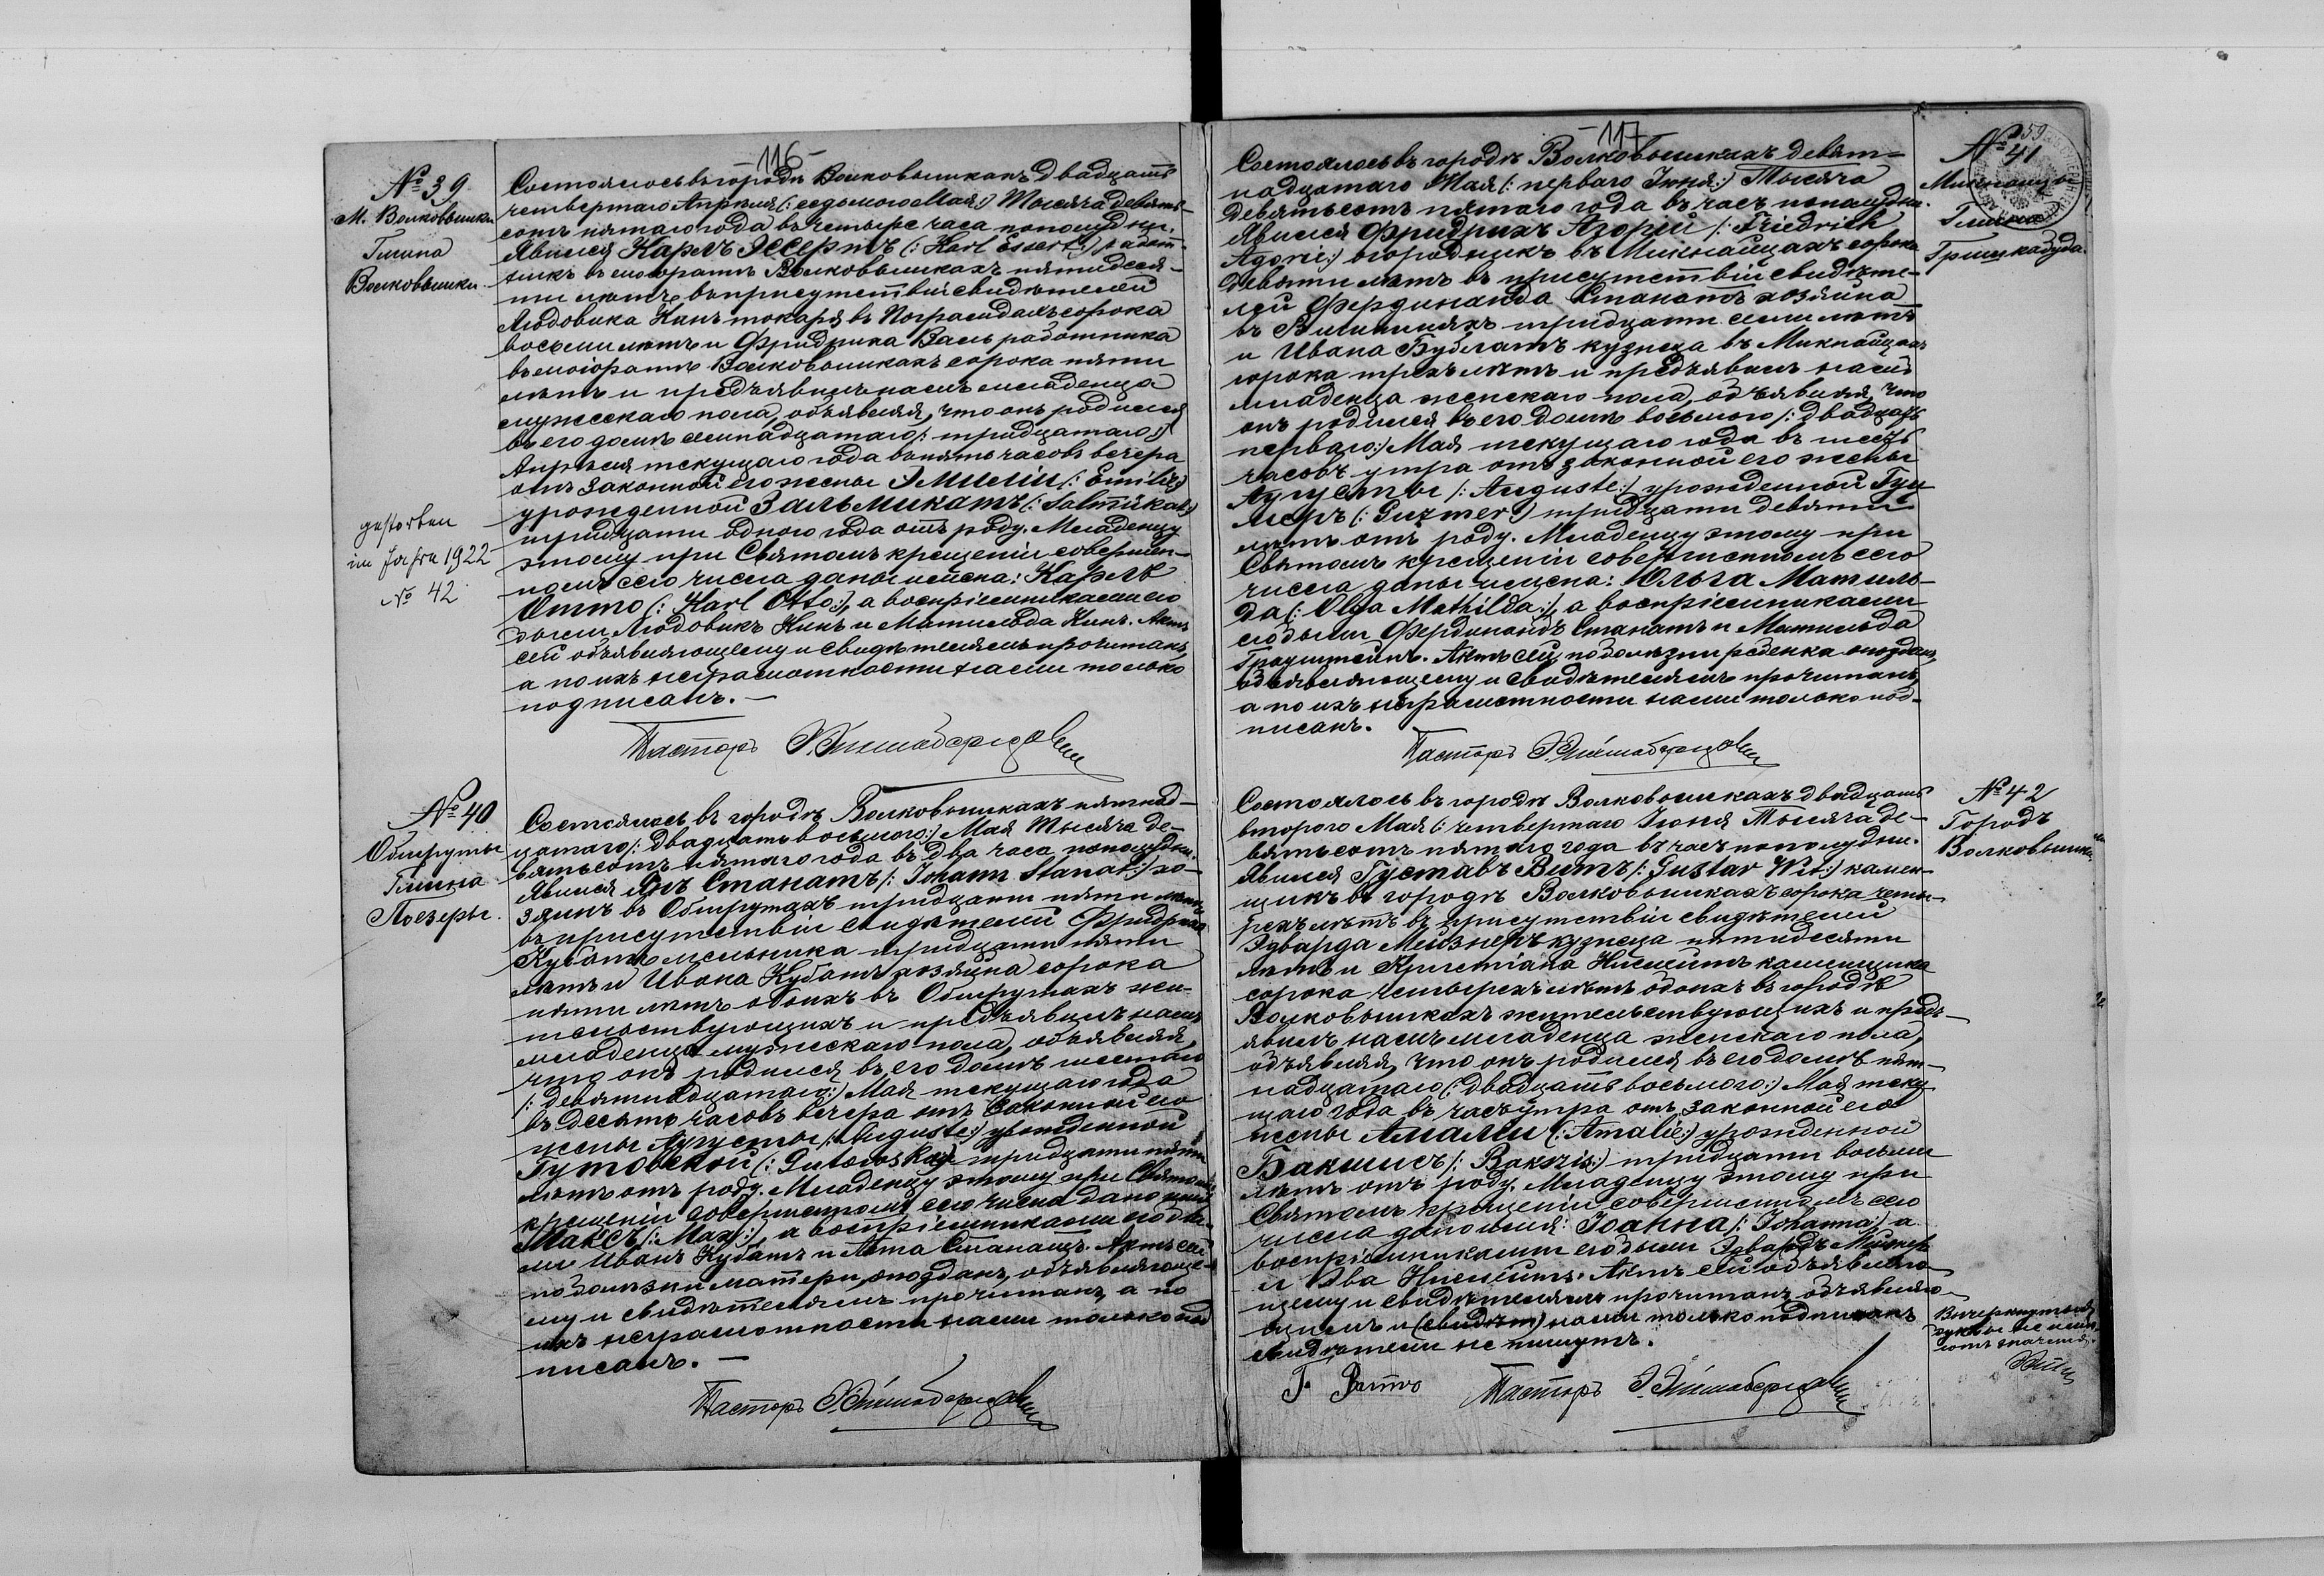 -116-
№ 39
М. Волковышки
Гмина
Волковышки
Состоялось въ городѣ Волковышкахъ двадцать
четвертаго Апрѣля (: седьмого Мая:) Тысяча девять-
сотъ пятаго года въ четыре часа пополудни.
Явился Карлъ Эссертъ (: Karl Essert:) работ-
никъ въ маіоратѣ Волковышкахъ пятидеся-
ти лѣтъ, въ присутствіи свидѣтелей
Людовика Кинъ токаря въ сорока
восьми лѣтъ и Фридриха Валь работника
въ маіоратѣ Волковышкахъ сорока пяти
лѣтъ и предъявилъ намъ младенца
мужескаго пола, объявляя, что онъ родился
въ его домѣ семнадцатаго (: тридцатаго:)
Апрѣля текущаго года въ пять часовъ вечера
отъ законной его жены Эмиліи (: Emilie:)
урожденной Зальмикатъ (: Salmikat:)
тридцати одного года отъ роду. Младенцу
этому при Святомъ крещеніи совершен-
номъ сего числа даны имена: Карлъ
Отто (: Karl Otto:), а воспріемниками его
были Людовикъ Кинъ и Матильда Кинъ. Актъ
сей объявляющему и свидѣтелямъ прочитанъ,
а по ихъ неграмотности нами только
подписанъ.—
Пасторъ
gestorben
im Jahre 1922
№ 42
№ 40
Обшруты
Гмина
Поезеры.
Состоялось въ городѣ Волковышкахъ пятнад-
цатаго (: двадцать восьмого:) Мая Тысяча де-
вятьсотъ пятаго года въ два часа пополудни.
Явился Янъ Станатъ (: Johann Stanat:) хо-
зяинъ въ Обшрутахъ тридцати пяти лѣтъ
въ присутствіи свидѣтелей Фридриха
Кубатъ мельника тридцати пяти
лѣтъ и Ивана Кубатъ хозяина сорока
пяти лѣтъ обоихъ въ Обшрутахъ жи-
тельствующихъ и предъявилъ намъ
младенца мужескаго пола, объявляя,
что онъ родился въ его домѣ шестаго
(: девятнадцатаго:) Мая текущаго года
въ десять часовъ вечера отъ законной его
жены Августы (: Auguste:) урожденной
Гутовской (: Gutowskaj:) тридцати пяти
лѣтъ отъ роду. Младенцу этому при Святомъ
крещеніи совершенномъ сего числа дано имя
Максъ (: Max:), а воспріемниками его бы-
ли Иванъ Кубатъ и Анна Станатъ. Актъ сей
по болѣзни матери опозданъ, объявляюще-
му и свидѣтелямъ прочитанъ, а по
ихъ неграмотности нами только под
писанъ.—
Пасторъ
-117-
59
№ 41
Гмина
Гришкабуда.
Состоялось въ городѣ Волковышкахъ девят=
надцатаго Мая (: перваго Іюня:) Тысяча
девятьсотъ пятаго года въ часъ пополудни.
Явился Фридрихъ Агоній (: Friedrich
Agoni:) огородникъ въ Микнайцахъ сорока
девяти лѣтъ въ присутствіи свидѣте-
лей Фердинанда Станатъ хозяина
въ тридцати семи лѣтъ
и Ивана Бублатъ кузнеца въ Микнайцахъ
сорока трехъ лѣтъ и предъявилъ намъ
младенца женскаго пола, объявляя, что
онъ родился въ его домѣ восьмого (: двадцать
перваго:) Мая текущаго года въ шесть
часовъ утра отъ законной его жены
Августы (: Auguste:) урожденной Гуц
меръ (: Guzmer:) тридцати девяти
лѣтъ отъ роду. Младенцу этому при
Святомъ крещеніи совершенномъ сего
числа даны имена: Ольга Матиль-
да (: Olga Mathilda:), а воспріемниками
его были Фердинандъ Станатъ и Матильда
Актъ сей, по болѣзни ребенка опозданъ,
объявляющему и свидѣтелямъ прочитанъ,
а по ихъ неграмотности нами только под-
писанъ.
Пасторъ
№ 42
Городъ
Волковышки
Состоялось въ городѣ Волковышкахъ двадцать
второго Мая (: четвертаго Іюня Тысяча де-
вятьсотъ пятаго года въ часъ пополудни.
Явился Густавъ Витъ (: Gustav Wit:) камен-
щикъ въ городѣ Волковышкахъ сорока четы-
рехъ лѣтъ въ присутствіи свидѣтелей
Эдварда Мейзнеръ кузнеца пятидесяти
лѣтъ и Кристіана каменщика
сорока четырехъ лѣтъ обоихъ въ городѣ
Волковышкахъ жительствующихъ и предъ-
явилъ намъ младенца женскаго пола,
объявляя, что онъ родился въ его домѣ пят-
надцатаго (: двадцать восьмого:) Мая теку
щаго года въ часъ утра отъ законной его
жены Амаліи (: Amalie:) урожденной
Бакшисъ (: Bakszis:) тридцати восьми
лѣтъ отъ роду. Младенцу этому при
Святомъ крещеніи совершенномъ сего
числа дано имя: Іоанна (: Johanna:) а
воспріемниками его были Эдвардъ Мейзнеръ
и Эва Актъ сей объявляю-
щему и свидѣтелямъ прочитанъ, объявляю-
щимъ и (свидѣт) нами только подписанъ
свидѣтели не пишутъ.
Г. Витъ Пасторъ
Вычеркнутыя
буквы не имѣ-
ютъ значенія.